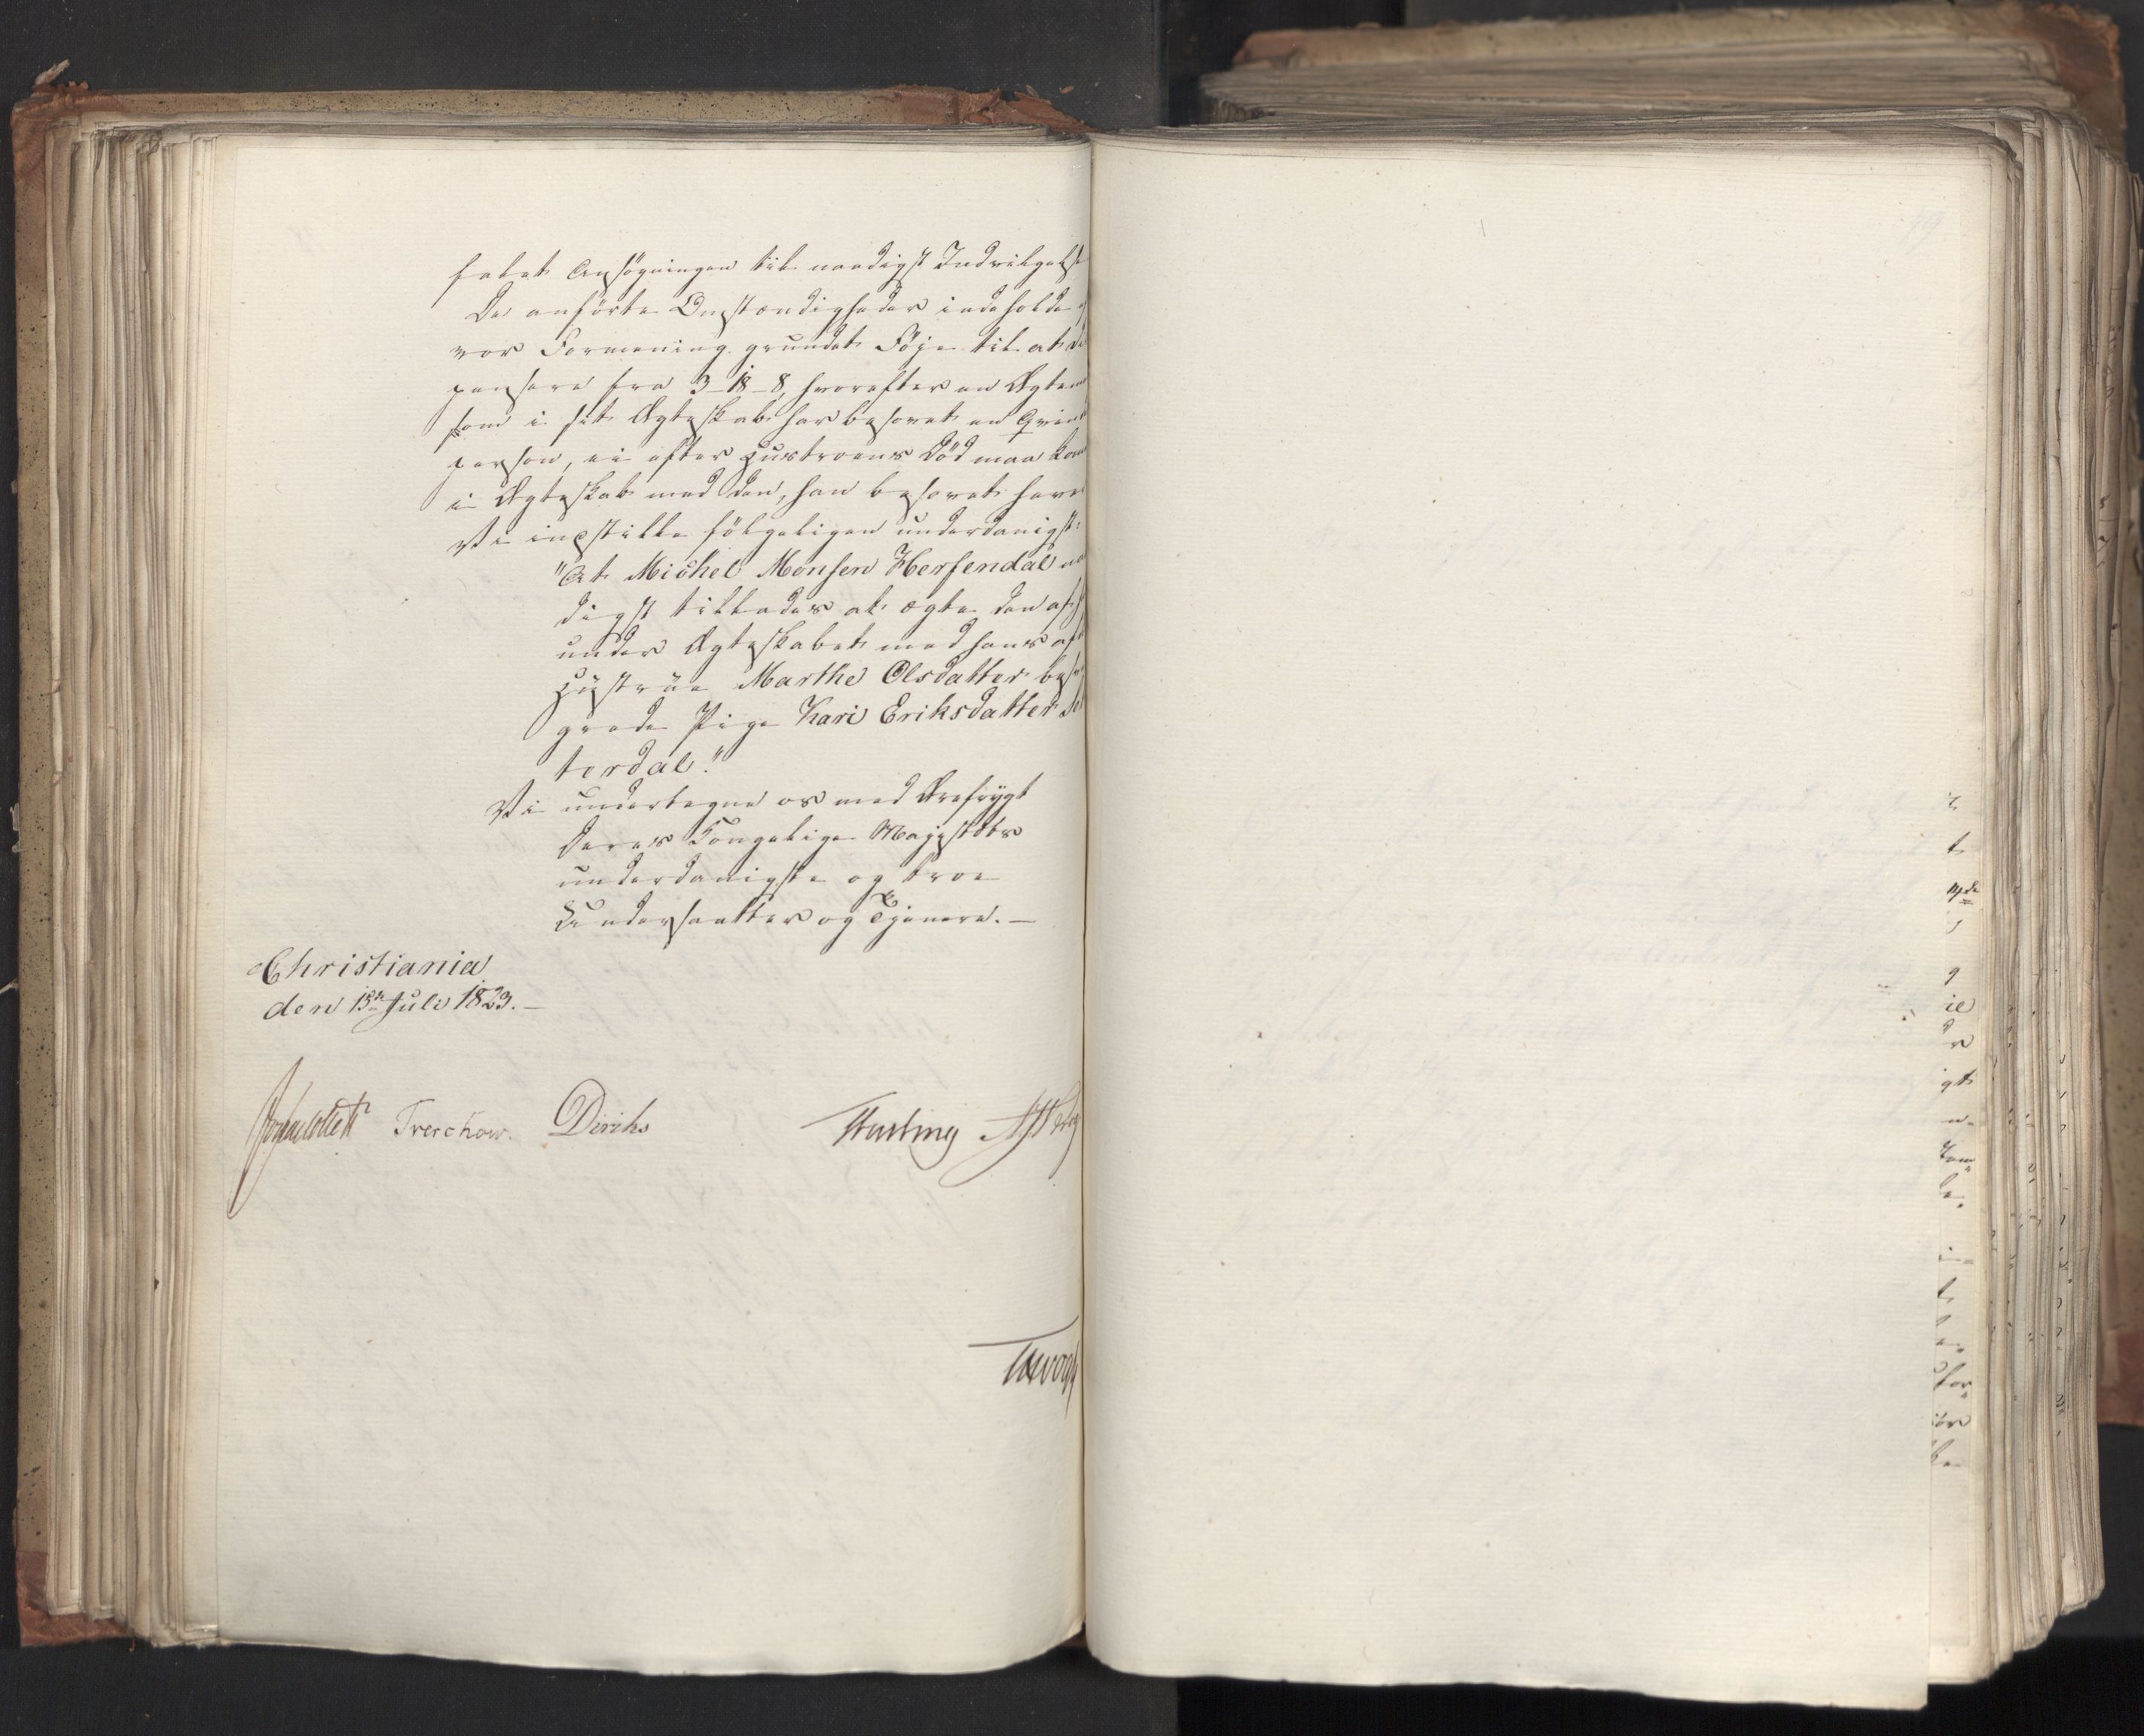 falet Ansögningen til naadigst Indvilgelse
De anförte Omstændigheder indeholde e
vor Formening grundet Föje til at di
pensere fra 3-18-8, hvorefter en Ægtem
som i sit Ægteskab har besovet en Qvind
person, ei efter Hustruens Död maa kom
i Ægteskab med den, han besovet haver
Vi indstille fölgeligen underdanigst:
"At Michel Monsen Herfendal na
digst tillades at ægte den af h
under Ægteskabet med hans af
Hustrue Marthe Olsdatter besv
grede Pige Kari Eriksdatter Sel
terdal."
Vi undertegne os med Ærefrygt
Deres Kongelige Majestæts
underdanigste og troe
Undersaatter og Tjenere. —
Christiania
den 15de Juli 1823. —
Treschow. Diriks